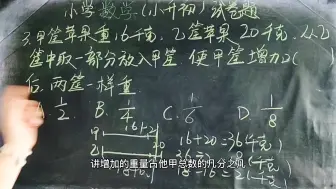 小学数学(小升初)试卷题
3.甲筐苹果重16千克,乙筐苹果20千克,从乙
筐中取一部分放入甲筐,使甲筐增加( )
后,两筐一样重
A. 1/2 B. 1/4 C. 1/6 D. 1/8
16+2
甲
乙
20
16+20=36(千克)
讲增加的重量占他甲总数的几分之几